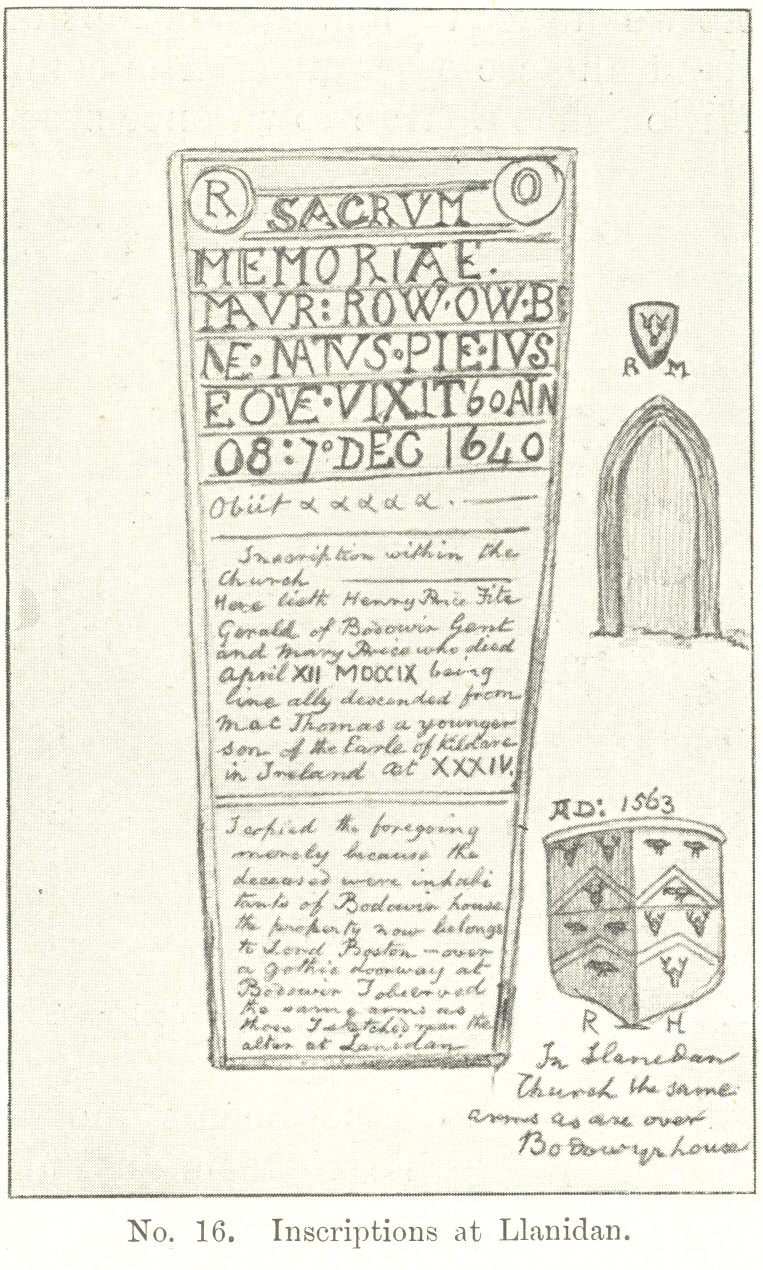 R O
SACRVM
MEMORIAE.
MAVR: ROW·OW·B
NE·NATVS·PIE·IVS
EQVE·VIXIT 60 AN
08:7° DEC 1640
Obiit α α α α α.
Inscription within the
Church
Here lieth Henry Price Fitz
Gerald of Bodowir Gent
and Mary Price who died
April XII MDCCIX being
line ally descended from
Mac Thomas a younger
son of the Earle of Kildare
in Ireland aet XXXIV.
I copied the foregoing
merely because the
deceased were inhabi
tants of Bodowir house
the property now belongs
to Lord Boston – over
a gothic doorway at
Bodowir I observed
the same arms as
those I sketched near the
alter at Lanidan
R M
AD: 1563
R H
In Llanidan
Church the same
arms as are over
Bodowyr house
No. 16. Inscriptions at Llanidan.